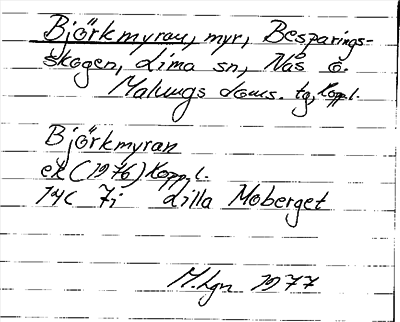 Björkmyran, myr, Besparings-
skogen, Lima sn, Nås o.
Malungs doms. tg, Kopp.l.
Björkmyran
ek (1976) Kopp.l.
14C 7i Lilla Moberget
M.Lgn 1977